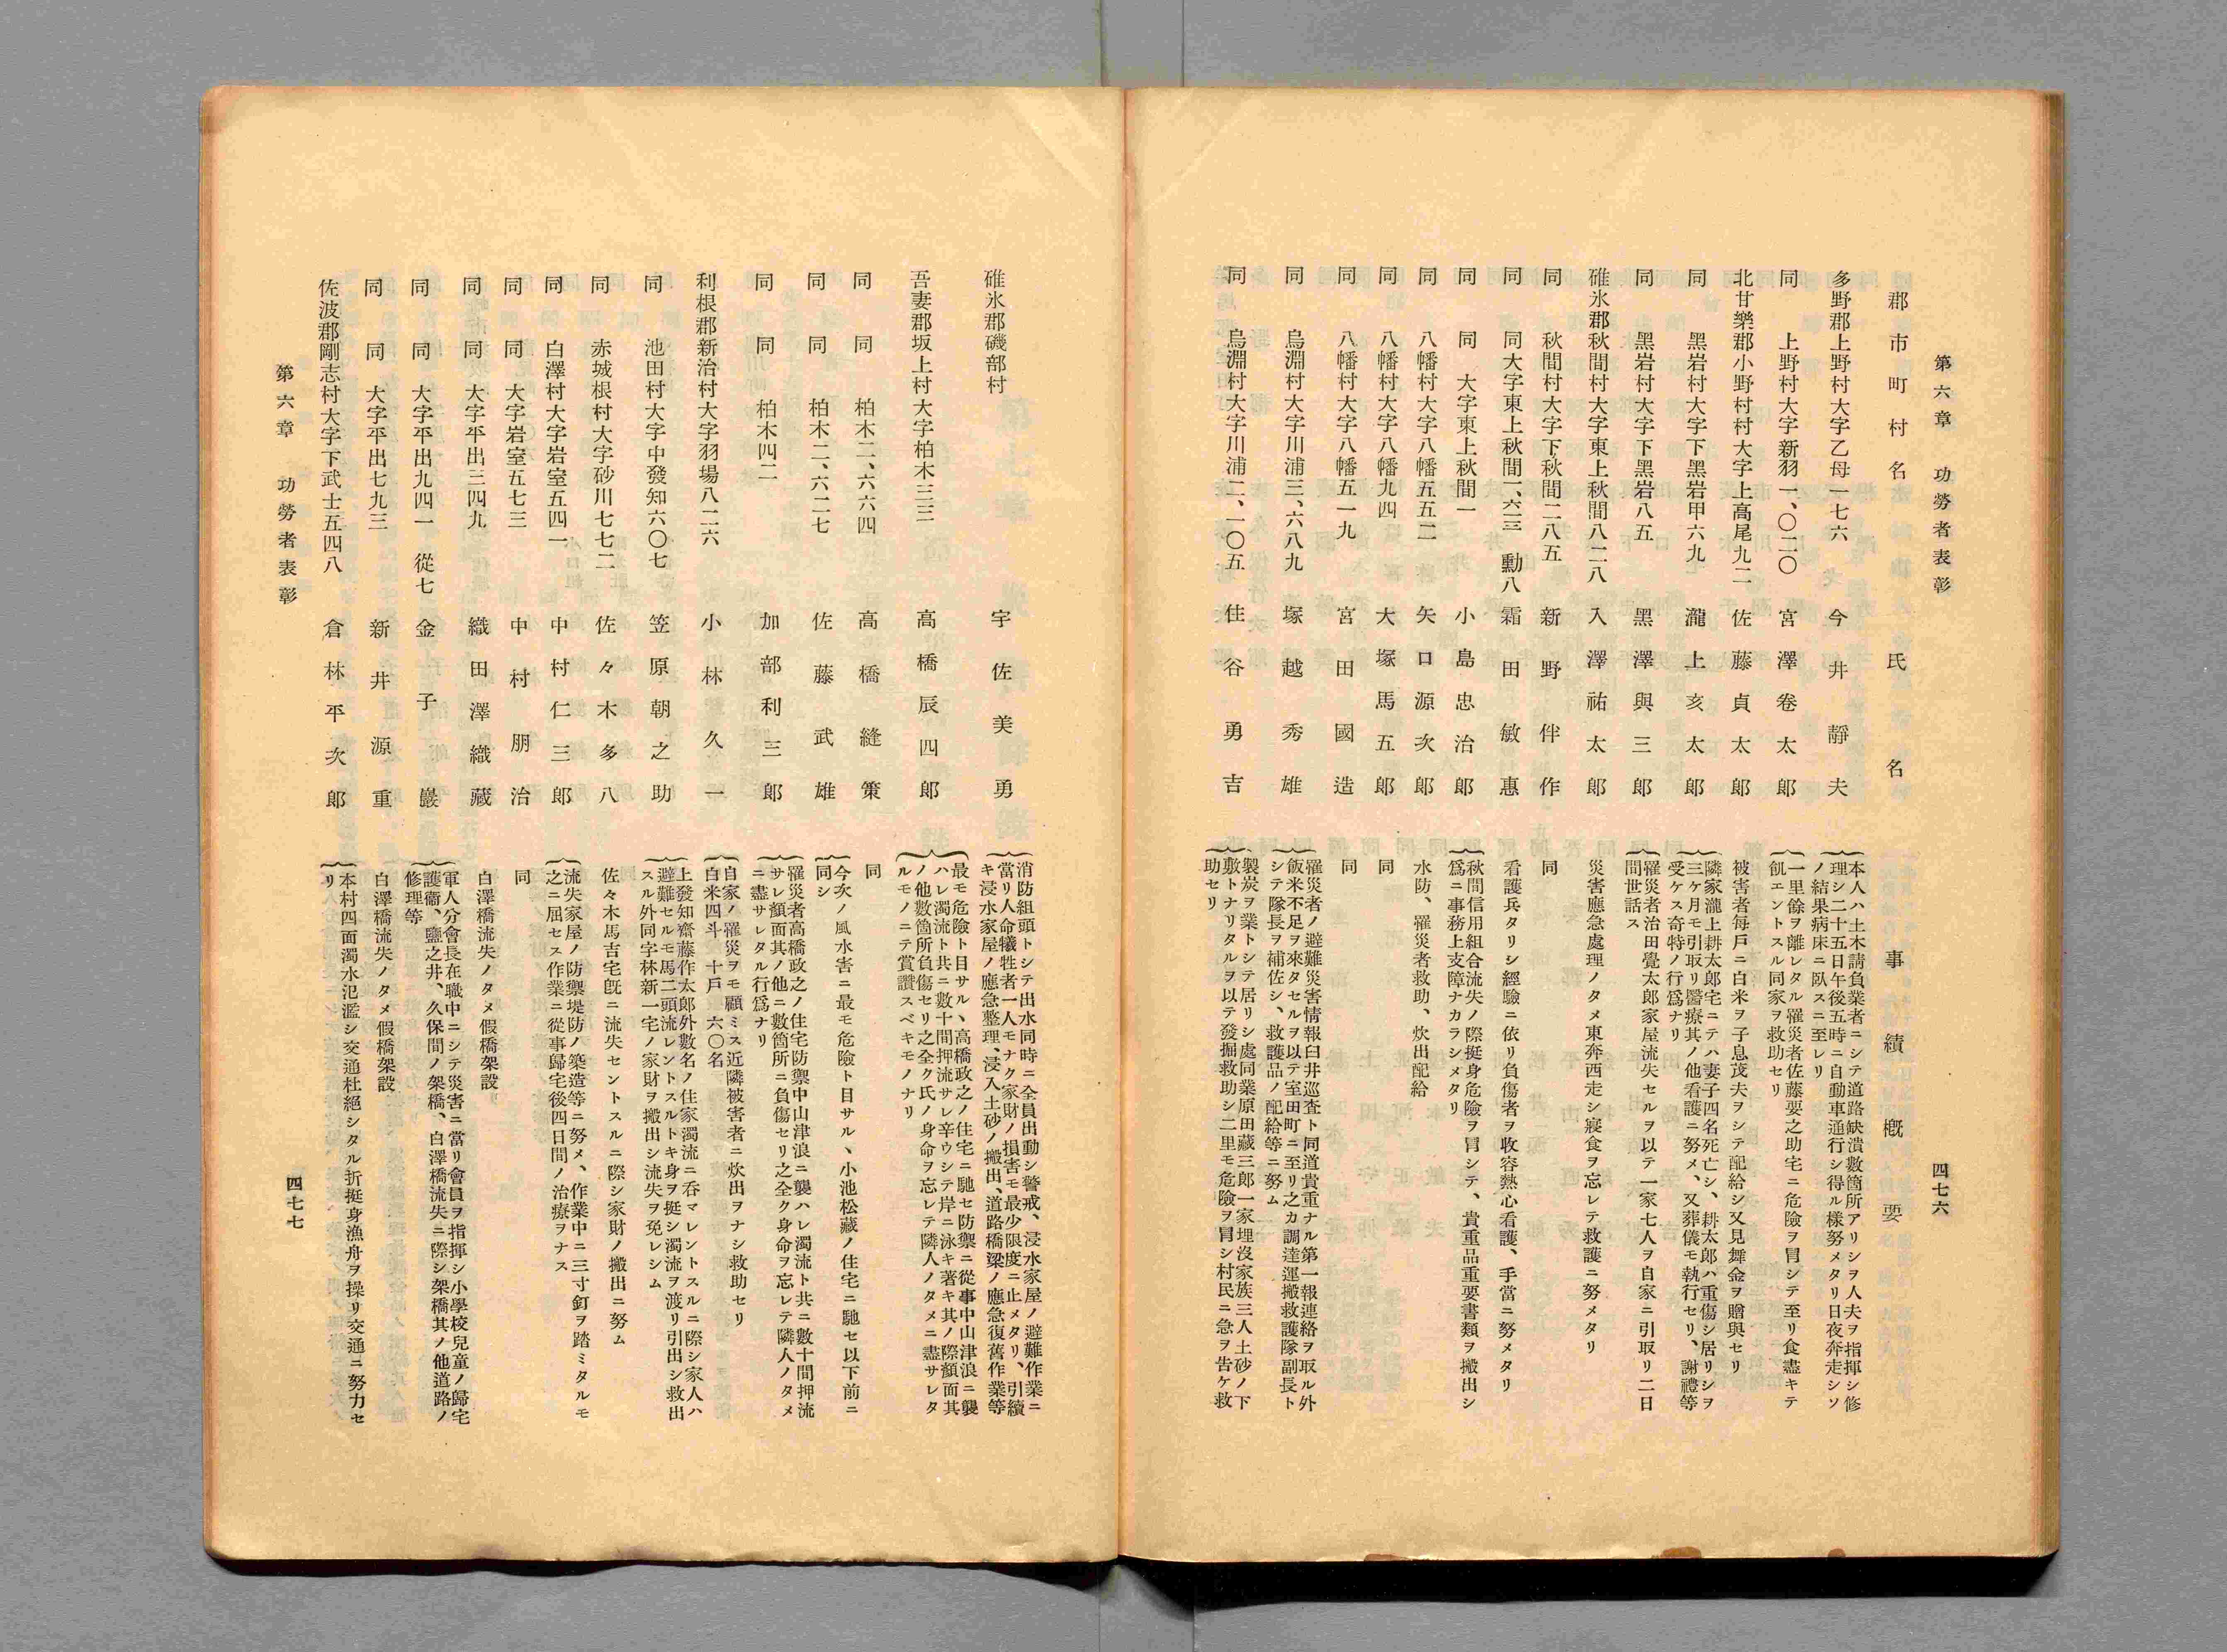 第六章　功勞者表彰
四七六
郡市町村名　氏名　事績概要
多野郡上野村大字乙母一七六　今井靜夫
本人ハ土木請負業者ニシテ道路缺潰數箇所アリシヲ人夫ヲ指揮シ修
理シ二十五日午後五時ニ自動車通行シ得ル樣努メタリ日夜奔走シソ
ノ結果病床ニ臥スニ至レリ
同　上野村大字新羽一、〇二〇　宮澤卷太郎
一里餘ヲ離レタル罹災者佐藤要之助宅ニ危險ヲ冐シテ至リ食盡キテ
飢エントスル同家ヲ救助セリ
北甘樂郡小野村村大字上高尾九二　佐藤貞太郎
被害者每戶ニ白米ヲ子息茂夫ヲシテ配給シ又見舞金ヲ贈與セリ
同　黑岩村大字下黑岩甲六九　瀧上亥太郎
隣家瀧上耕太郎宅ニテハ妻子四名死亡シ、耕太郎ハ重傷シ居リシヲ
三ケ月モ引取リ醫療其ノ他看護ニ努メ、又葬儀モ執行セリ、謝禮等
受ケス奇特ノ行爲ナリ
同　黑岩村大字下黑岩八五　黑澤與三郎
罹災者治田覺太郎家屋流失セルヲ以テ一家七人ヲ自家ニ引取リ二日
間世話ス
碓氷郡秋間村大字東上秋間八二八　入澤祐太郎
災害應急處理ノタメ東奔西走シ寢食ヲ忘レテ救護ニ努メタリ
同　秋間村大字下秋間二八五　新野伴作
同
同　同大字東上秋間一、六三　勳八　霜田敏惠
看護兵タリシ經驗ニ依リ負傷者ヲ收容熱心看護、手當ニ努メタリ
同　同　大字東上秋間一　小島忠治郎
秋間信用組合流失ノ際挺身危險ヲ冐シテ、貴重品重要書類ヲ搬出シ
爲ニ事務上支障ナカラシメタリ
同　八幡村大字八幡五五二　矢口源次郎
水防、罹災者救助、炊出配給
同　八幡村大字八幡九四　大塚馬五郎
同
同　八幡村大字八幡五一九　宮田國造
同
同　烏淵村大字川浦三、六八九　塚越秀雄
罹災者ノ避難災害情報臼井巡查ト同道貴重ナル第一報連絡ヲ取ル外
飯米不足ヲ來タセルヲ以テ室田町ニ至リ之カ調達運搬救護隊副長ト
シテ隊長ヲ補佐シ、救護品ノ配給等ニ努ム
同　烏淵村大字川浦二、一〇五　佳谷勇吉
製炭ヲ業トシテ居リシ處同業原田藏三郎一家埋沒家族三人土砂ノ下
敷トナリタルヲ以テ發掘救助シ二里モ危險ヲ冐シ村民ニ急ヲ告ケ救
助セリ
碓氷郡磯部村　宇佐美勇
消防組頭トシテ出水同時ニ全員出動シ警戒、浸水家屋ノ避難作業ニ
當リ人命犧牲者一人モナク家財ノ損害モ最少限度ニ止メタリ、引續
キ浸水家屋ノ應急整理、浸入土砂ノ搬出、道路橋梁ノ應急復舊作業等
吾妻郡坂上村大字柏木三三　高橋辰四郎
最モ危險ト目サルヽ高橋政之ノ住宅ニ馳セ防禦ニ從事中山津浪ニ襲
ハレ濁流ト共ニ數十間押流サレ辛ウシテ岸ニ泳キ著キ其ノ際顏面其
ノ他數箇所負傷セリ之全ク氏ノ身命ヲ忘レテ隣人ノタメニ盡サレタ
ルモノニテ賞讚スベキモノナリ
同　同　柏木二、六六四　高橋縫策
同
同　同　柏木二、六二七　佐藤武雄
今次ノ風水害ニ最モ危險ト目サルヽ小池松藏ノ住宅ニ馳セ以下前ニ
同シ
同　同　柏木四二　加部利三郎
罹災者高橋政之ノ住宅防禦中山津浪ニ襲ハレ濁流ト共ニ數十間押流
サレ顏面其ノ他ニ數箇所ニ負傷セリ之全ク身命ヲ忘レテ隣人ノタメ
ニ盡サレタル行爲ナリ
利根郡新治村大字羽場八二六　小林久一
自家ノ罹災ヲモ顧ミス近隣被害者ニ炊出ヲナシ救助セリ
白米四斗、十戶、六〇名
同　池田村大字中發知六〇七　笠原朝之助
上發知齋藤作太郎外數名ノ住家濁流ニ呑マレントスルニ際シ家人ハ
避難セルモ馬二頭流レントスルトキ身ヲ挺シ濁流ヲ渡リ引出シ救出
スル外同字林新一宅ノ家財ヲ搬出シ流失ヲ免レシム
同　赤城根村大字砂川七七二　佐々木多八
佐々木馬吉宅旣ニ流失セントスルニ際シ家財ノ搬出ニ努ム
同　白澤村大字岩室五四一　中村仁三郎
流失家屋ノ防禦堤防ノ築造等ニ努メ、作業中ニ三寸釘ヲ踏ミタルモ
之ニ屈セス作業ニ從事歸宅後四日間ノ治療ヲナス
同　同　大字岩室五七三　中村朋治
同
同　同　大字平出三四九　織田澤織藏
白澤橋流失ノタメ假橋架設
同　同　大字平出九四一　從七　金子巖
軍人分會長在職中ニシテ災害ニ當リ會員ヲ指揮シ小學校兒童ノ歸宅
護衞、鹽之井、久保間ノ架橋、白澤橋流失ニ際シ架橋其ノ他道路ノ
修理等
同　同　大字平出七九三　新井源重
白澤橋流失ノタメ假橋架設
佐波郡剛志村大字下武士五四八　倉林平次郎
本村四面濁水氾濫シ交通杜絕シタル折挺身漁舟ヲ操リ交通ニ努力セ
リ
第六章　功勞者表彰
四七七